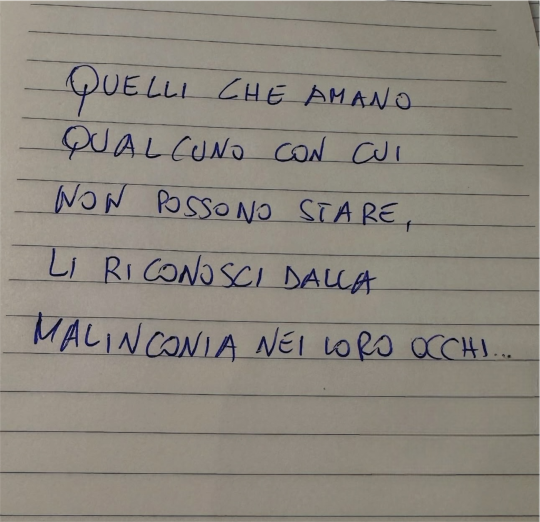 QUELLI CHE AMANO
QUALCUNO CON CUI
NON POSSONO STARE,
LI RICONOSCI DALLA
MALINCONIA NEI LORO OCCHI...